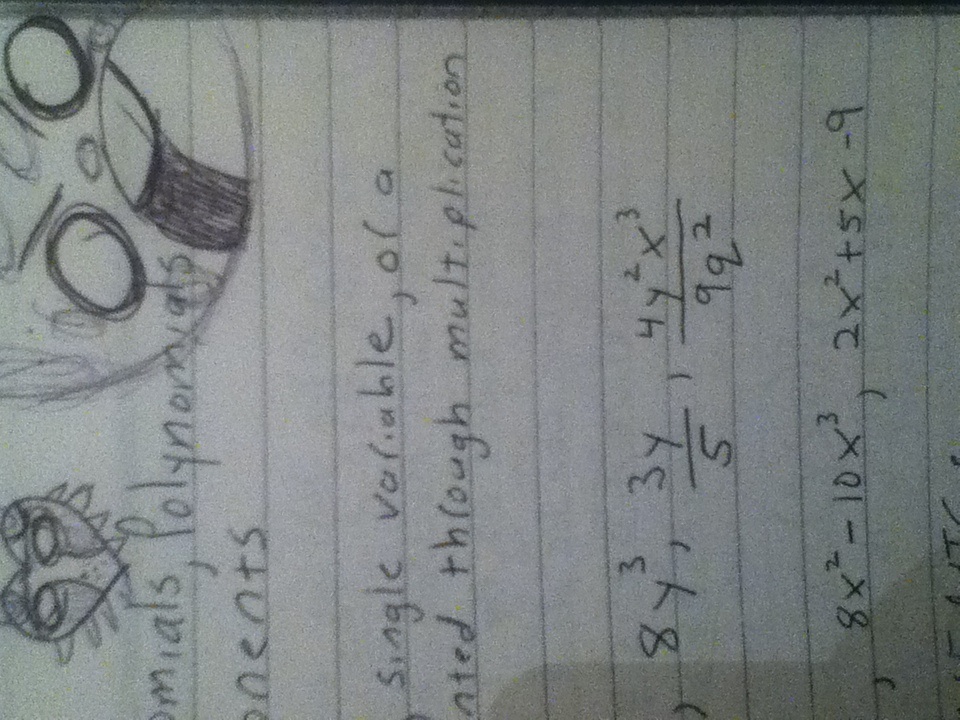 omials, Polynomials
onents
single variable, or a
nted through multiplication
, 8y³, 3y/5, 4y²x³/9q²
, 8x² - 10x³, 2x² + 5x - 9